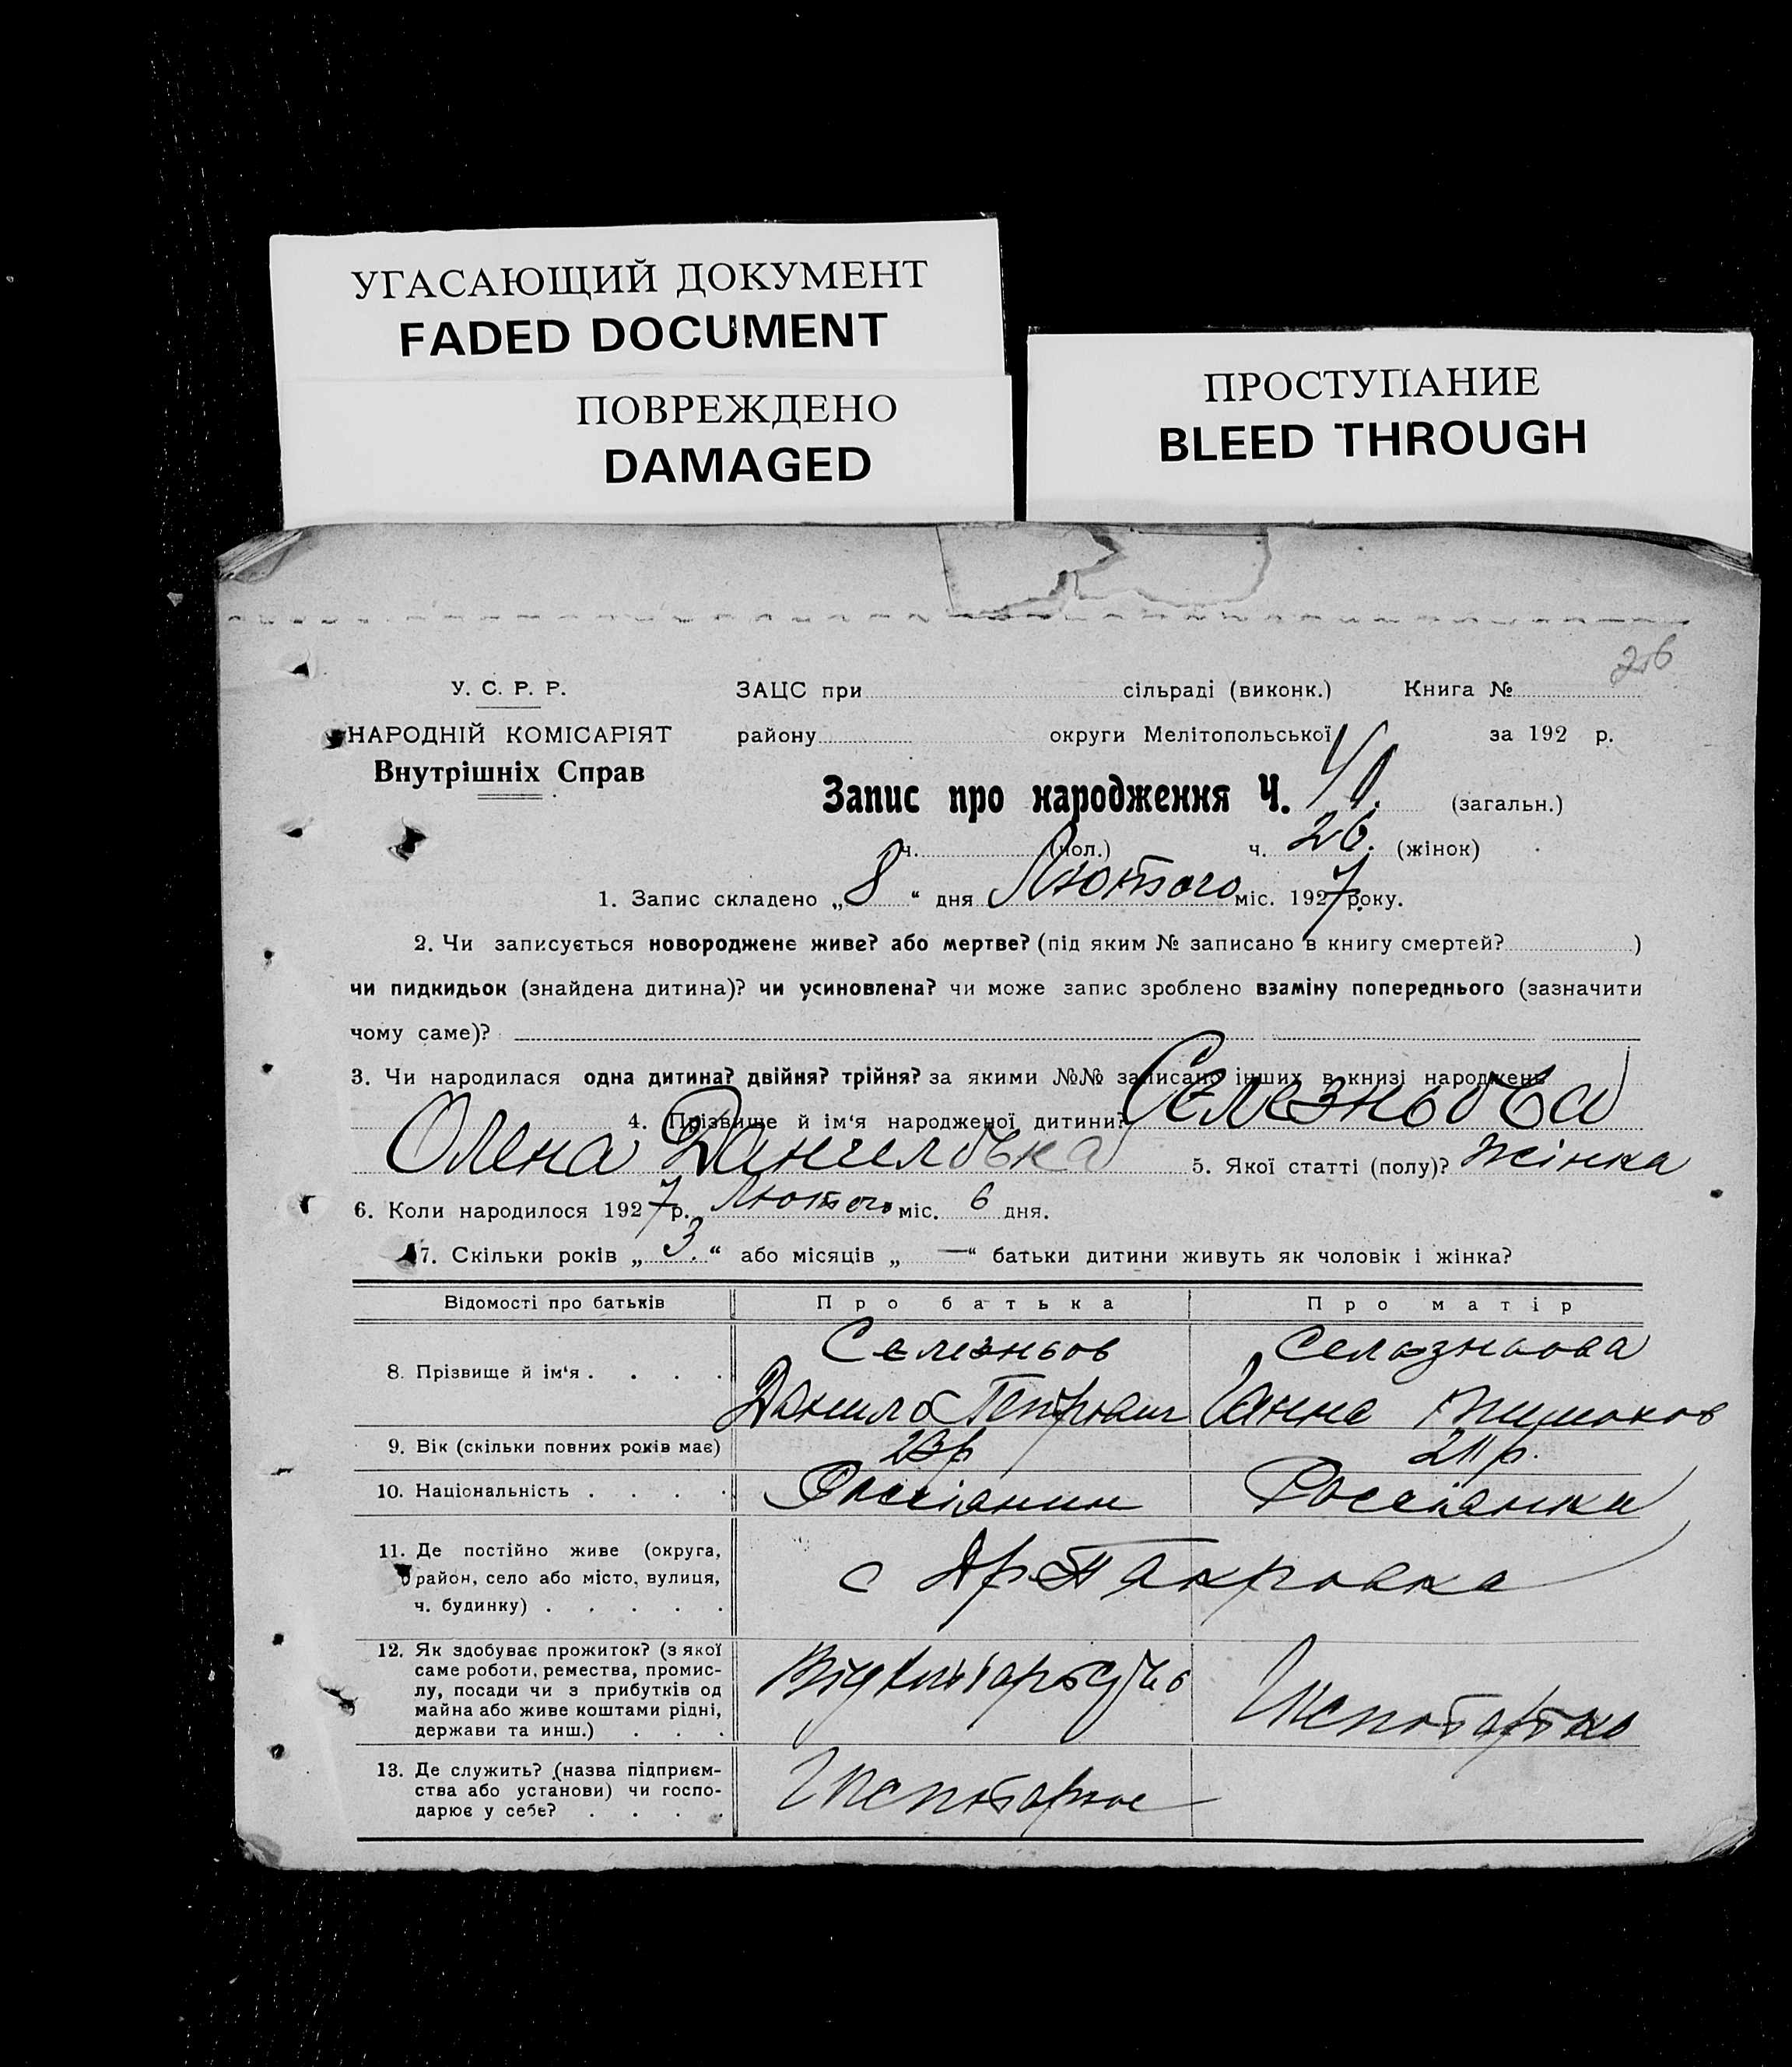 УГАСАЮЩИЙ ДОКУМЕНТ
FADED DOCUMENT
ПОВРЕЖДЕНО
DAMAGED
ПРОСТУПАНИЕ
BLEED THROUGH
У. С. Р. Р.
НАРОДНІЙ КОМІСАРІЯТ
Внутрішніх Справ
ЗАЦС при сільраді (виконк.) Книга №
району округи Мелітопольської за 192 р.
Запис про народження Ч. (загальн.)
ч. (чол.) ч. 26. (жінок)
1. Запис складено „8“ дня Лютого міс. 1927 року.
2. Чи записується новороджене живе? або мертве? (під яким № записано в книгу смертей? )
чи пидкидьок (знайдена дитина)? чи усиновлена? чи може запис зроблено взаміну попереднього (зазначити
чому саме)?
3. Чи народилася одна дитина? двійня? трійня? за якими №№ записано інших в книзі народжень
4. Прізвище й ім‘я народженої дитини? Селезньова
Олена Данилівна 5. Якої статті (полу)? жінка
6. Коли народилося 1927 р. Лютого міс. 6 дня.
7. Скільки років „3.“ або місяців „—“ батьки дитини живуть як чоловік і жінка?
Відомості про батьків Про батька Про матір
8. Прізвище й ім‘я . . . . Селезньов Селезньова
Данило Петрович Ганна
9. Вік (скільки повних років має) 23р 21р.
10. Національність . . . . Россіанин Россіанка
11. Де постійно живе (округа,
район, село або місто, вулиця,
ч. будинку) . . . . .
с
12. Як здобуває прожиток? (з якої
саме роботи, ремества, промис-
лу, посади чи з прибутків од
майна або живе коштами рідні,
держави та инш.) . . .
13. Де служить? (назва підприєм-
ства або установи) чи госпо-
дарює у себе? . . . .